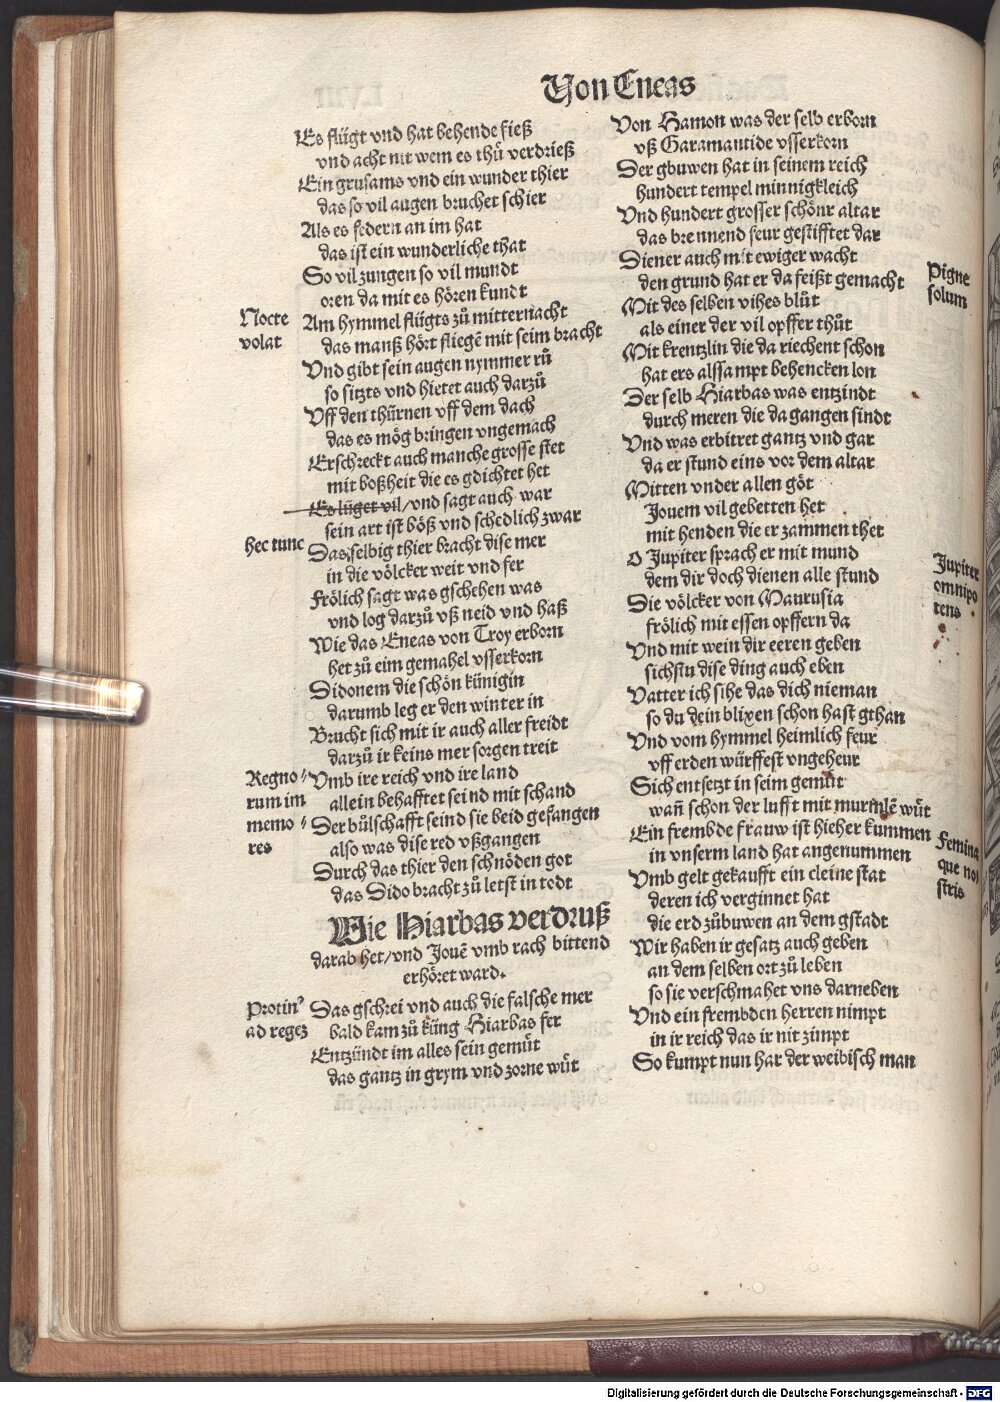 Von Eneas
Es flügt vnd hat behende fieß
vnd acht nit wem es thuͤ verdrieß
Ein grusams vnd ein wunder thier
das so vil augen bruchet schier
Als es federn an im hat
das ist ein wunderliche that
So vil zungen so vil mundt
oren da mit es hören kundt
Nocte
volat
Am hymmel flügts zuͦ mitternacht
das manß hört fliegē mit seim bracht
Vnd gibt sein augen nymmer ruͦ
so sitzts vnd hietet auch darzuͦ
Vff den thürnen vff dem dach
das es mög bringen vngemach
Erschreckt auch manche grosse stet
mit boßheit die es gdichtet het
Es lüget vil/vnd sagt auch war
sein art ist böß vnd schedlich zwar
hec tunc
Das selbig thier bracht dise mer
in die völcker weit vnd fer
Frölich sagt was gschehen was
vnd log darzuͦ vß neid vnd haß
Wie das Eneas von Troy erborn
het zuͦ eim gemahel vsserkorn
Sidonem die schön künigin
darumb leg er den winter in
Brucht sich mit ir auch aller freidt
darzuͦ ir keins mer sorgen treit
Regno⸗
rum im
memo⸗
res
Vmb ire reich vnd ire land
allein behafftet seind mit schand
Der buͦlschafft seind sie beid gefangen
also was dise red vßgangen
Durch das thier den schnöden got
das Dido bracht zuͦ letst in todt
Wie Hiarbas verdruß
darab het/vnd Jouē vmb rach bittend
erhöret ward.
Protin⁹
ad regez
Das gschrei vnd auch die falsche mer
bald kam zuͦ küng Hiarbas fer
Entzündt im alles sein gemuͤt
das gantz in grym vnd zorne wuͤt
Von Hamon was der selb erborn
vß Garamantide vsserkorn
Der gbuwen hat in seinem reich
hundert tempel minnigkleich
Vnd hundert grosser schönr altar
das brennend feur gestifftet dar
Diener auch mit ewiger wacht
den grund hat er da feißt gemacht
Pigne
solum
Mit des selben vihes bluͤt
als einer der vil opffer thuͤt
Mit krentzlin die da riechent schon
hat ers alssampt behencken lon
Der selb Hiarbas was entzindt
durch meren die da gangen sindt
Vnd was erbitret gantz vnd gar
da er stund eins vor dem altar
Mitten vnder allen göt
Jouem vil gebetten het
mit henden die er zammen thet
O Jupiter sprach er mit mund
dem dir doch dienen alle stund
Jupiter
omnipo
tens
Die völcker von Maurusia
frölich mit essen opffern da
Vnd mit wein dir eeren geben
sichstu dise ding auch eben
Vatter ich sihe das dich nieman
so du dein blixen schon hast gthan
Vnd vom hymmel heimlich feur
vff erden würffest vngeheur
Sich entsetzt in seim gemuͤt
wañ schon der lufft mit murmlē wuͤt
Ein frembde frauw ist hieher kummen
in vnserm land hat angenummen
Femina
que nos
stris
Vmb gelt gekaufft ein cleine stat
deren ich verginnet hat
die erd zuͦbuwen an dem gstadt
Wir haben ir gesatz auch geben
an dem selben ort zuͦ leben
so sie verschmahet vns darneben
Vnd ein frembden herren nimpt
in ir reich das ir nit zimpt
So kumpt nun har der weibisch man
Digitalisierung gefördert durch die Deutsche Forschungsgemeinschaft - DFG